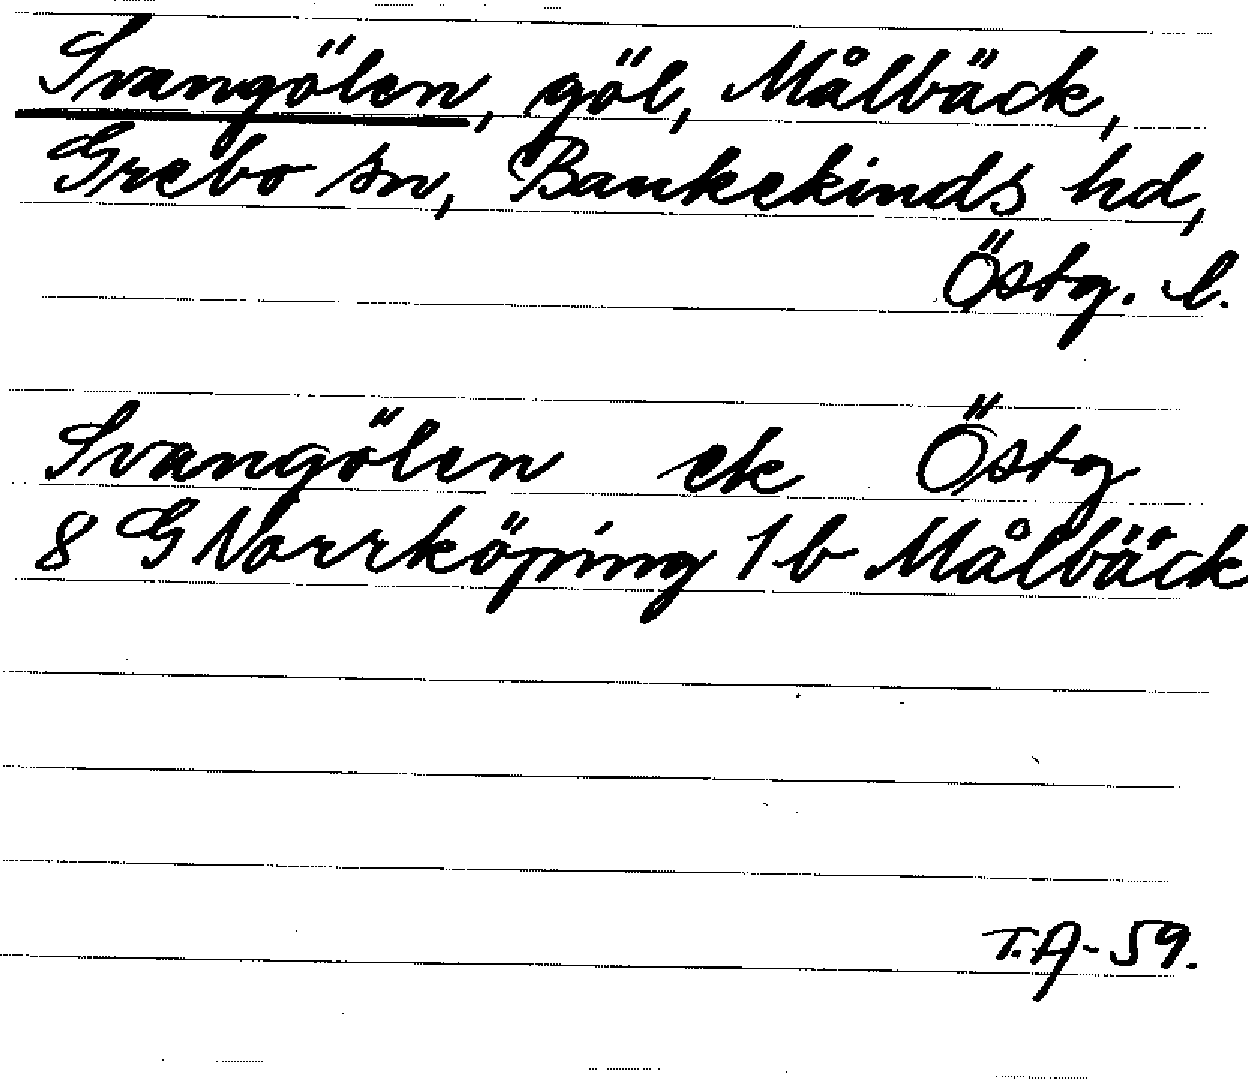 Svangölen, göl, Målbäck,
Grebo sn, Bankekinds hd,
Östg. l.
Svangölen ek Östg
8 G Norrköping 1 b Målbäck
T.A-59.